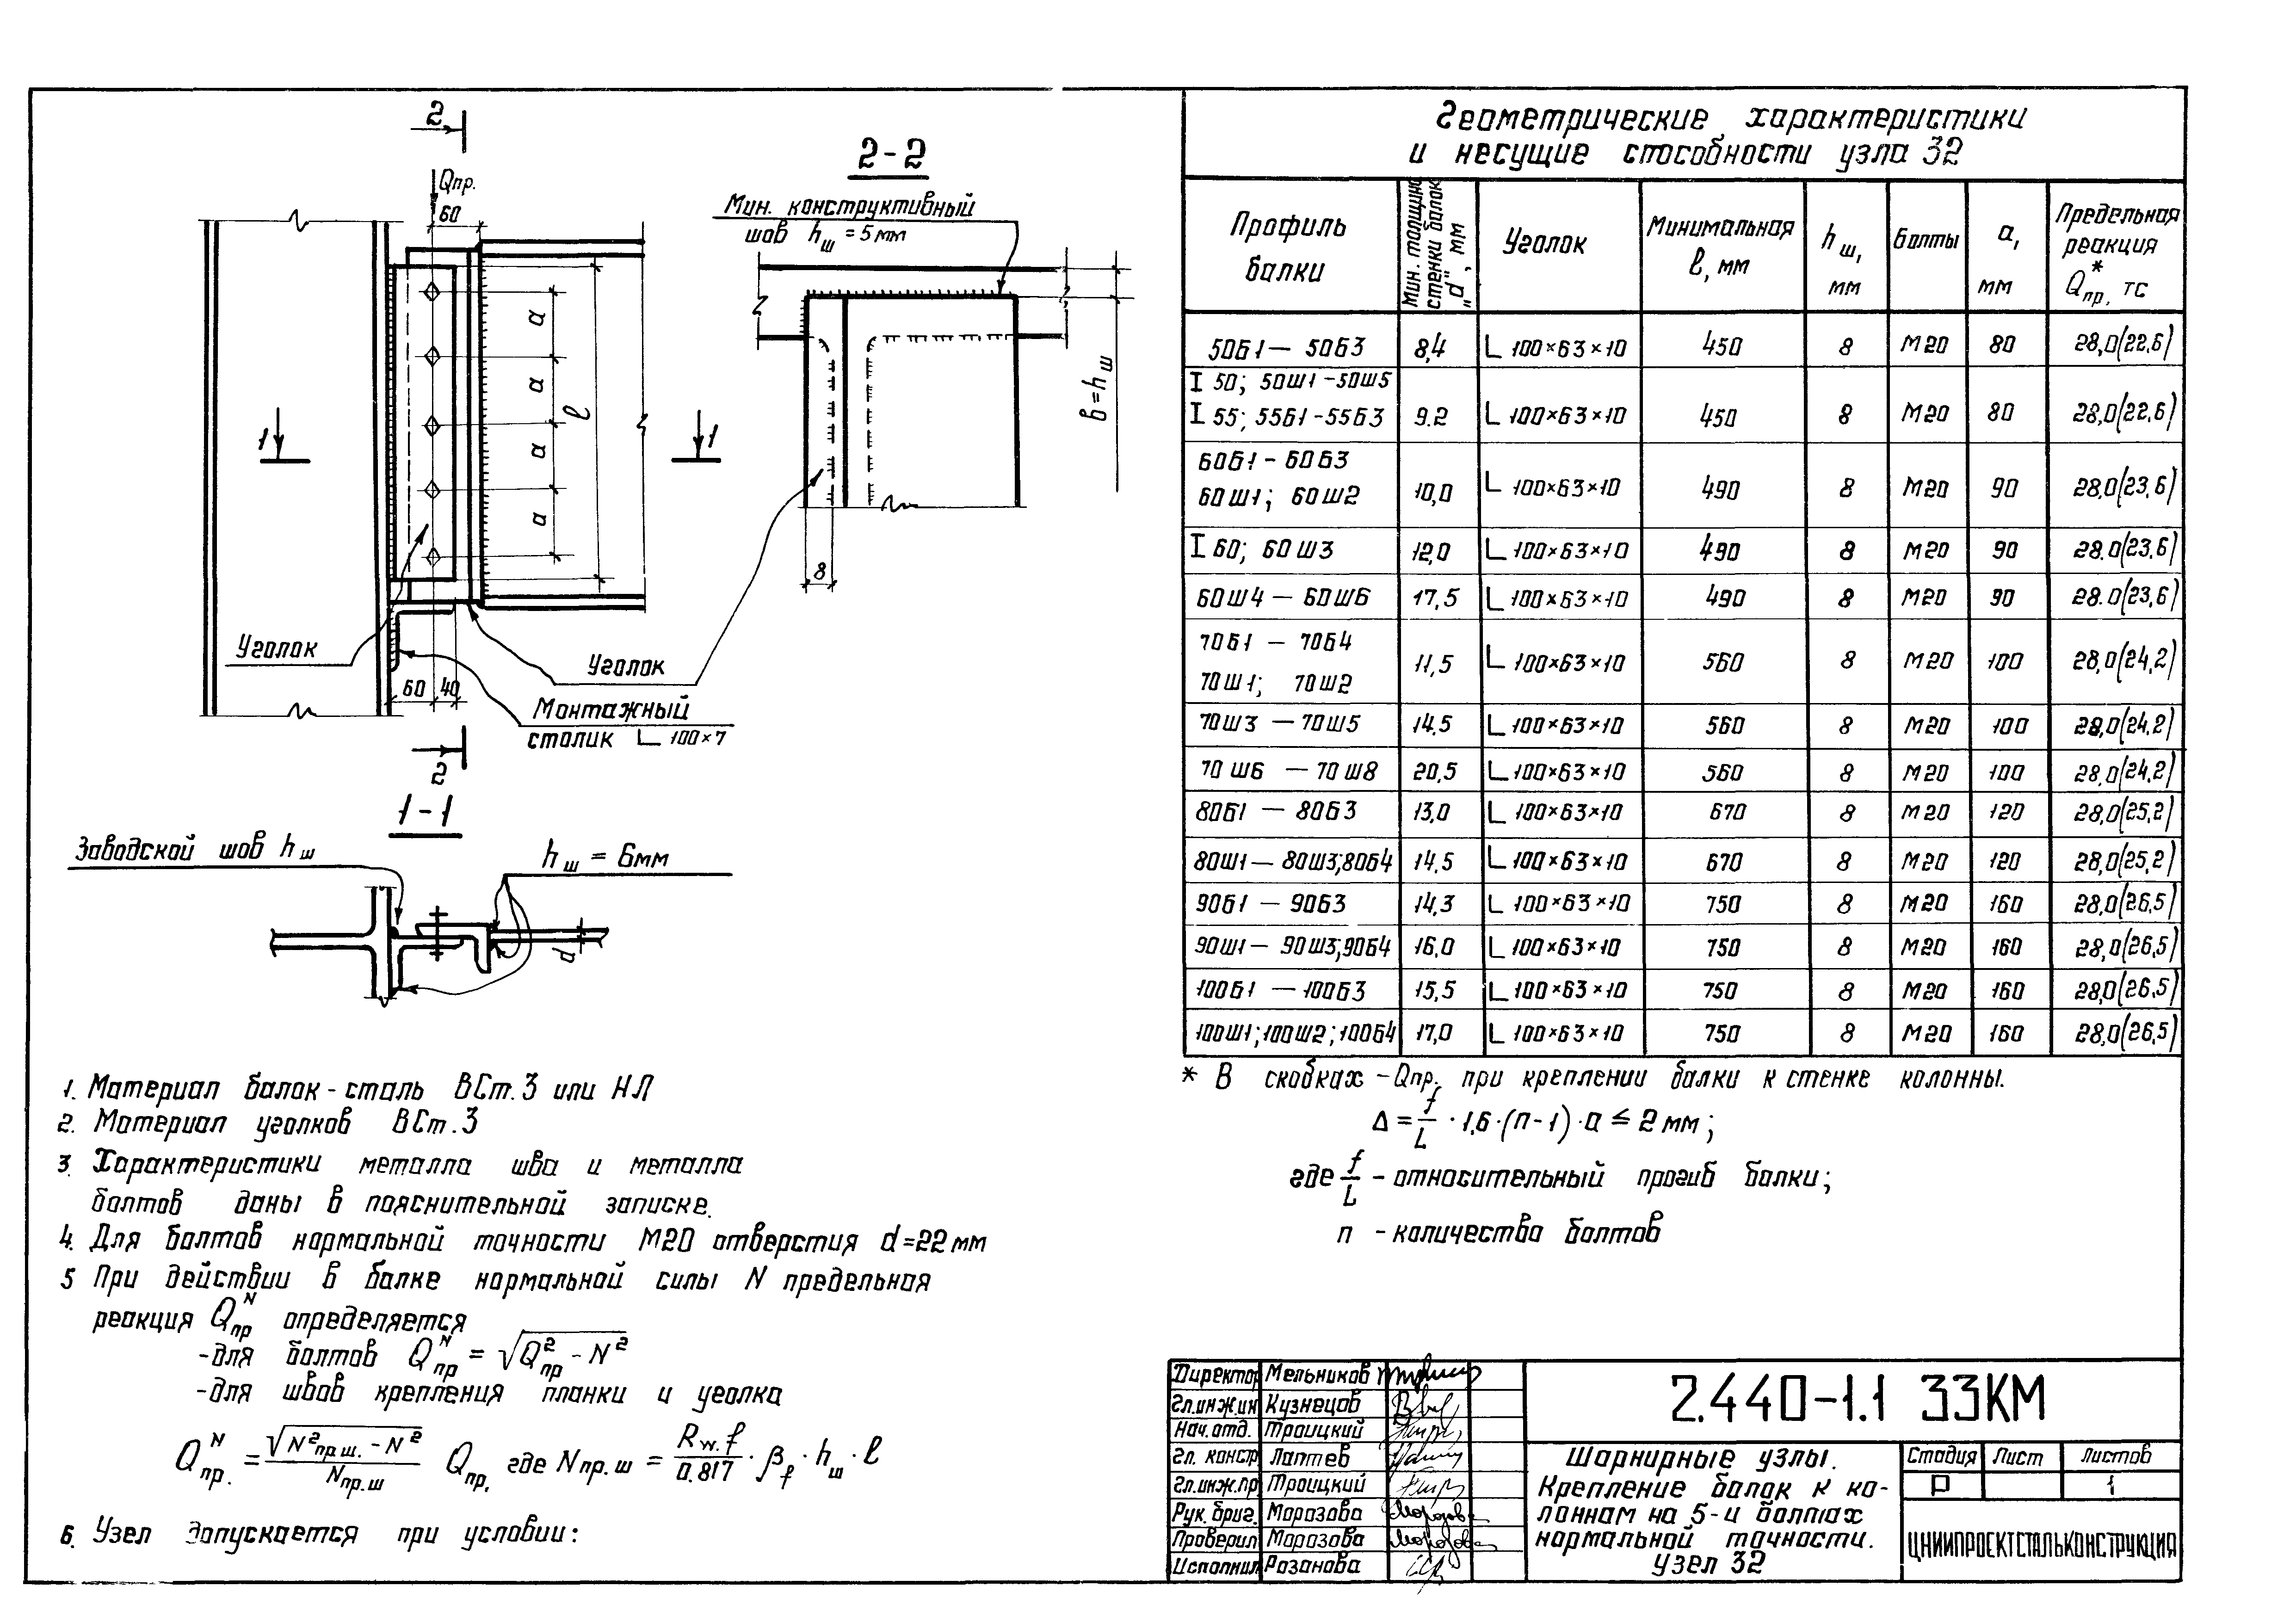 2
Qпр.
60
a
a
a
a
l
1
1
Уголок
60 40
Уголок
Монтажный
столик L 100×7
2
2-2
Мин. конструктивный
шов hш = 5мм
в=hш
8
1-1
Заводской шов hш
hш = 6мм
d
1. Материал балок - сталь ВСт.3 или НЛ
2. Материал уголков ВСт.3
3. Характеристики металла шва и металла
болтов даны в пояснительной записке.
4. Для болтов нормальной точности М20 отверстия d=22мм
5 При действии в балке нормальной силы N предельная
реакция Qпр^N определяется
-для болтов Qпр^N = √(Q²пр - N²)
-для швов крепления планки и уголка
Qпр.^N = √(N²пр.ш. - N²) / Nпр.ш Qпр, где Nпр.ш = Rw.f / 0.817 · βf · hш · l
6. Узел допускается при условии:
Геометрические характеристики
и несущие способности узла 32
Профиль балки | Мин. толщина стенки балок „d", мм | Уголок | Минимальная l, мм | hш, мм | Болты | a, мм | Предельная реакция Q*пр, тс
50Б1 — 50Б3 | 8,4 | L 100×63×10 | 450 | 8 | М20 | 80 | 28,0(22,6)
I 50; 50Ш1 - 50Ш5
I 55; 55Б1 - 55Б3 | 9.2 | L 100×63×10 | 450 | 8 | М20 | 80 | 28,0(22,6)
60Б1 - 60Б3
60Ш1; 60Ш2 | 10,0 | L 100×63×10 | 490 | 8 | М20 | 90 | 28.0(23,6)
I 60; 60Ш3 | 12,0 | L 100×63×10 | 490 | 8 | М20 | 90 | 28.0(23,6)
60Ш4 — 60Ш6 | 17,5 | L 100×63×10 | 490 | 8 | М20 | 90 | 28.0(23,6)
70Б1 — 70Б4
70Ш1; 70Ш2 | 11,5 | L 100×63×10 | 560 | 8 | М20 | 100 | 28,0(24,2)
70Ш3 — 70Ш5 | 14,5 | L 100×63×10 | 560 | 8 | М20 | 100 | 28,0(24,2)
70Ш6 — 70Ш8 | 20,5 | L 100×63×10 | 560 | 8 | М20 | 100 | 28,0(24,2)
80Б1 — 80Б3 | 13,0 | L 100×63×10 | 670 | 8 | М20 | 120 | 28,0(25,2)
80Ш1 — 80Ш3; 80Б4 | 14,5 | L 100×63×10 | 670 | 8 | М20 | 120 | 28,0(25,2)
90Б1 — 90Б3 | 14,3 | L 100×63×10 | 750 | 8 | М20 | 160 | 28,0(26,5)
90Ш1 — 90Ш3; 90Б4 | 16,0 | L 100×63×10 | 750 | 8 | М20 | 160 | 28,0(26,5)
100Б1 — 100Б3 | 15,5 | L 100×63×10 | 750 | 8 | М20 | 160 | 28,0(26,5)
100Ш1; 100Ш2; 100Б4 | 17,0 | L 100×63×10 | 750 | 8 | М20 | 160 | 28,0(26,5)
* В скобках - Qпр. при креплении балки к стенке колонны.
Δ = f/L · 1,6 · (n-1) · a ≤ 2мм;
где f/L - относительный прогиб балки;
n - количество болтов
Директор Мельников
Гл.инж.ин Кузнецов
Нач.отд. Троицкий
Гл. констр Лаптев
Гл.инж.пр Троицкий
Рук.бриг. Морозова
Проверил Морозова
Исполнил Розанова
2.440-1.1 33КМ
Шарнирные узлы.
Крепление балок к ко-
лоннам на 5-и болтах
нормальной точности.
Узел 32
Стадия Лист Листов
Р 1
ЦНИИПРОЕКТСТАЛЬКОНСТРУКЦИЯ